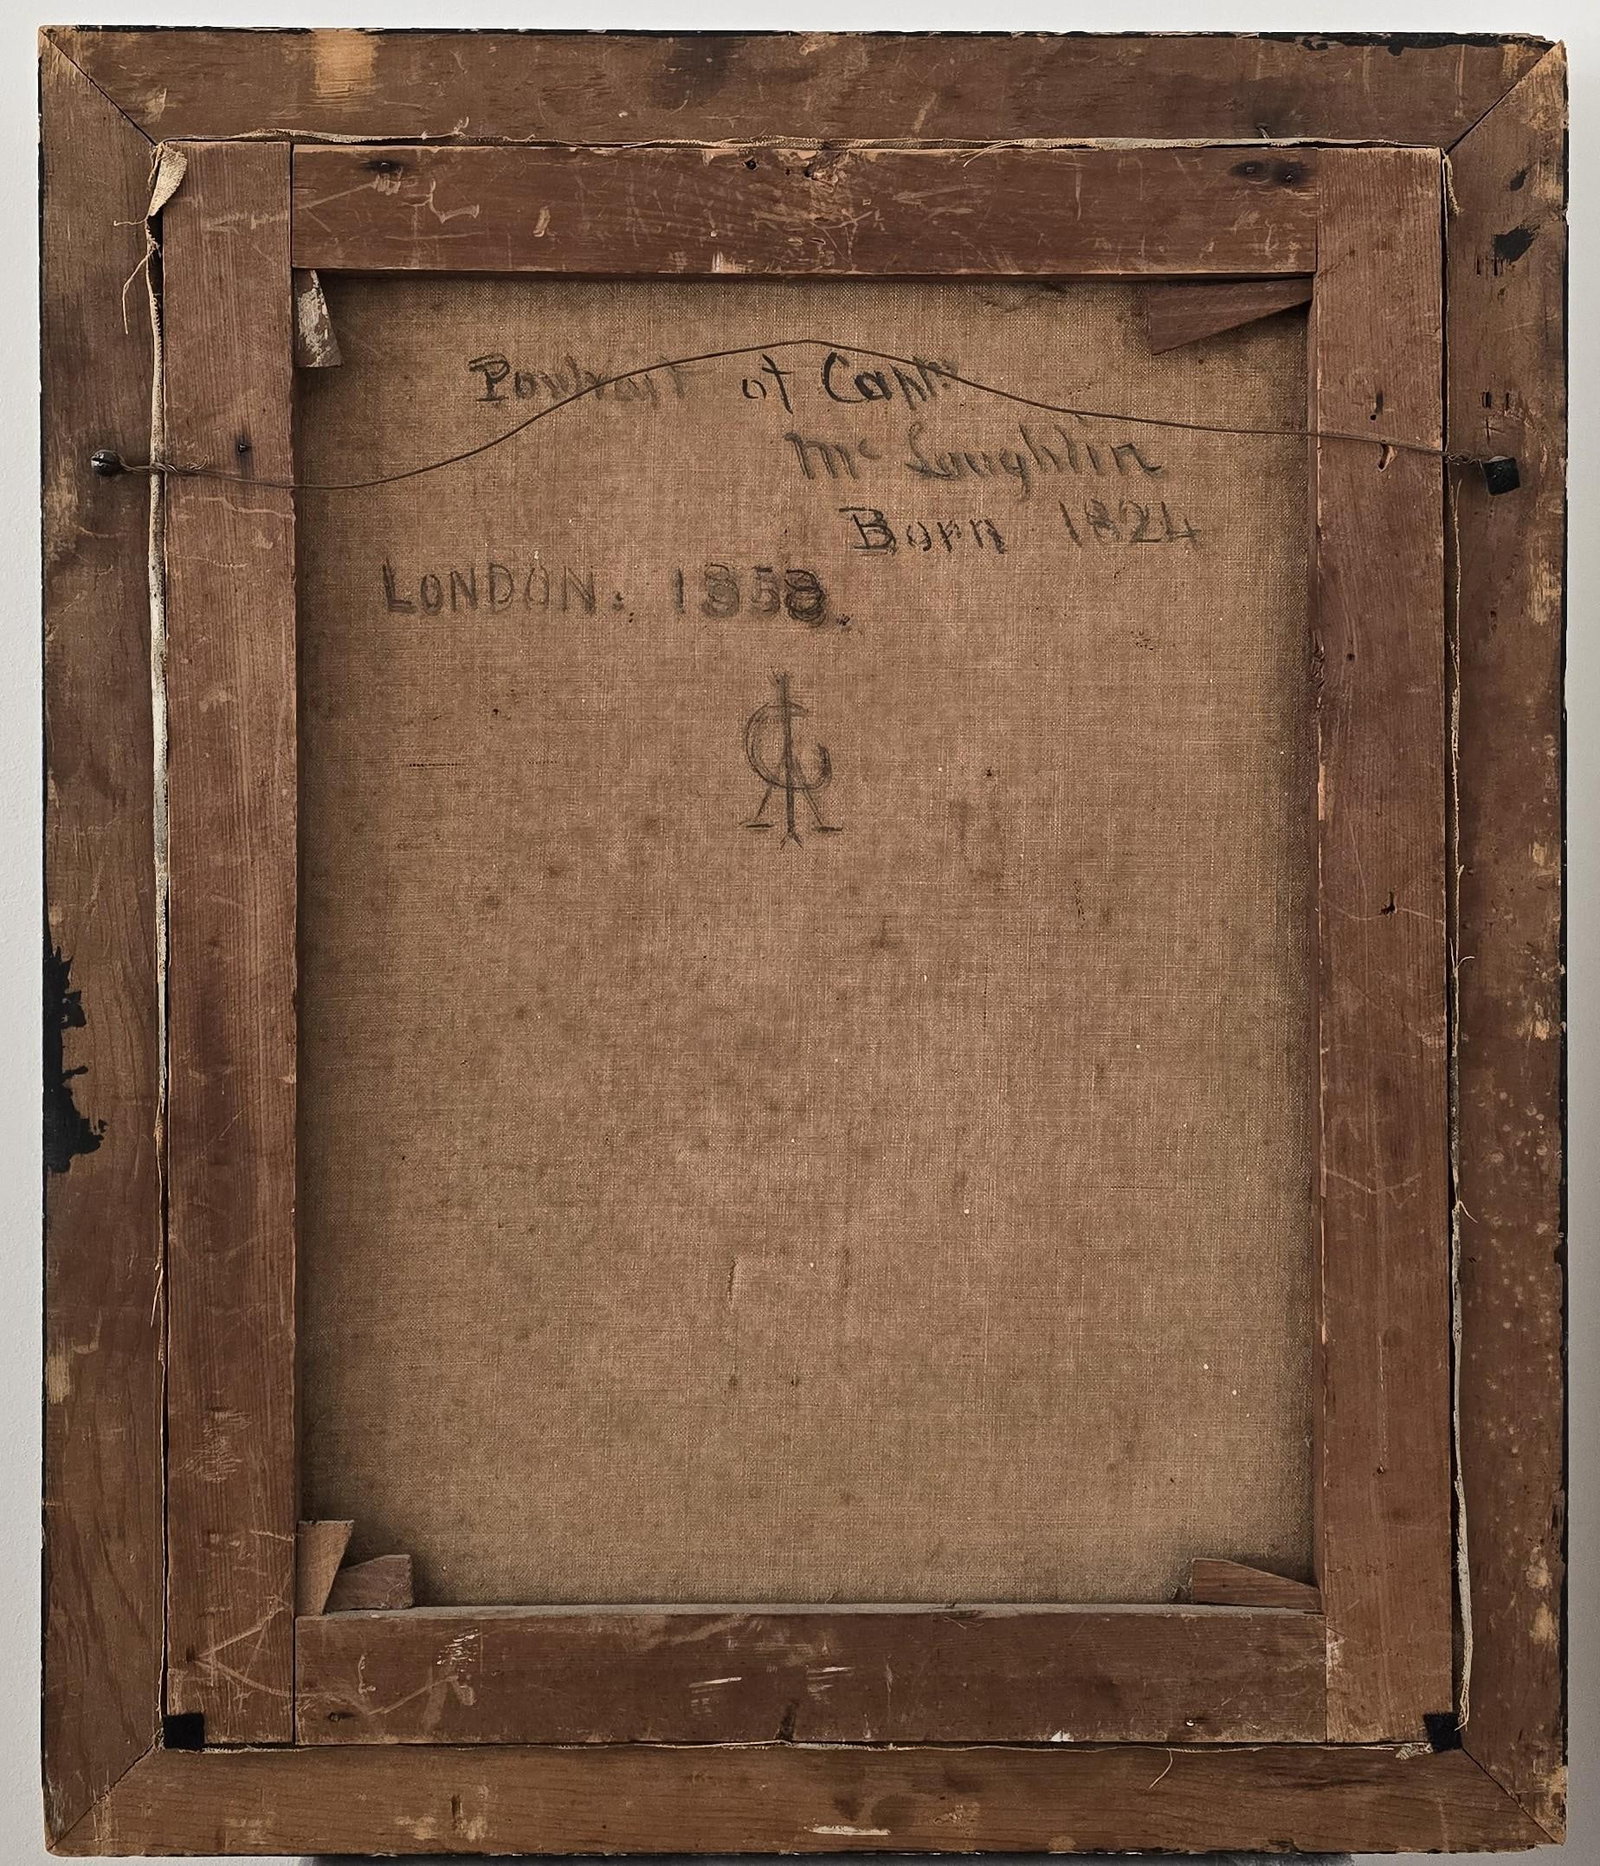 Portrait of Capt.
Mc Loughlin
Born 1824
LONDON. 1858.